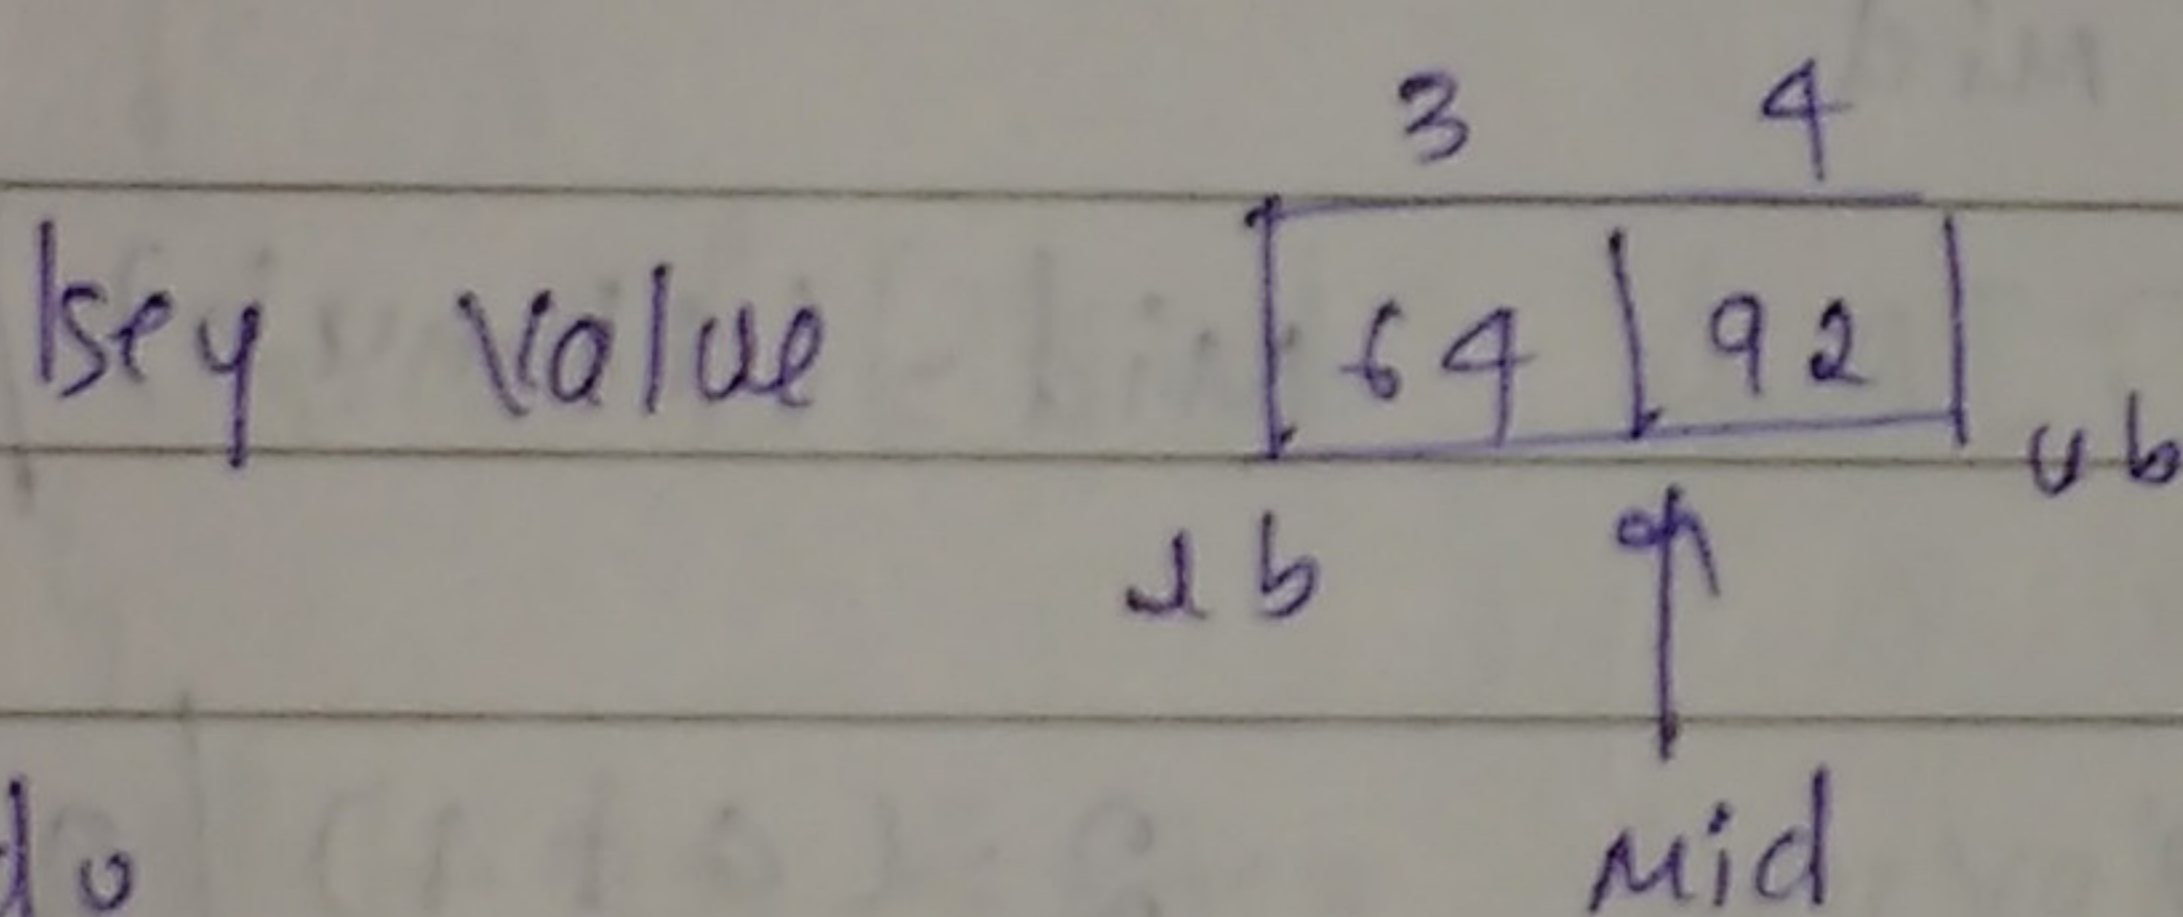 3 4
key value 64 92
lb ub
Mid